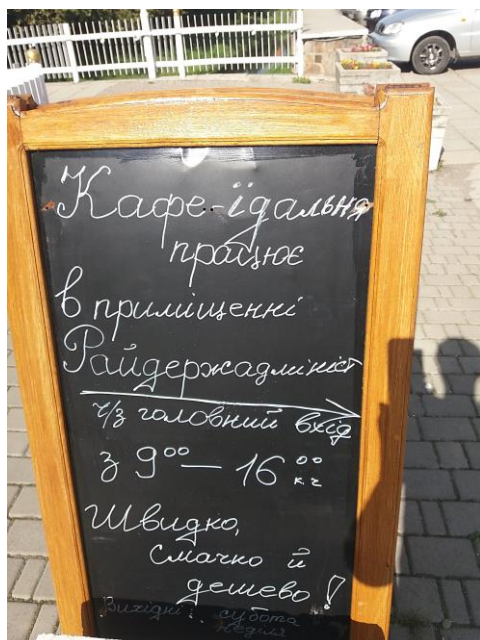 Кафе-їдальня
працює
в приміщенні
Райдержадмініст
ч/з головний вхід
з 9⁰⁰ — 16⁰⁰
Швидко,
смачно й
дешево!
Вихідні: субота
неділя